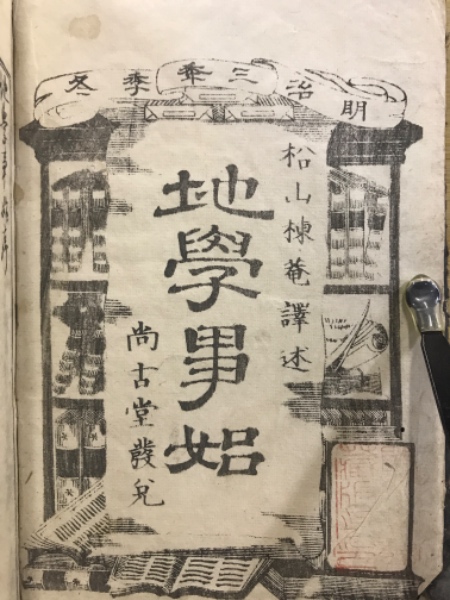 明治三年季冬
松山棟菴譯述
地學事始
尚古堂發兌